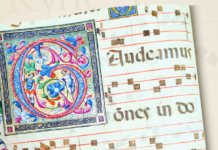 G
Audeamus
õnes in do